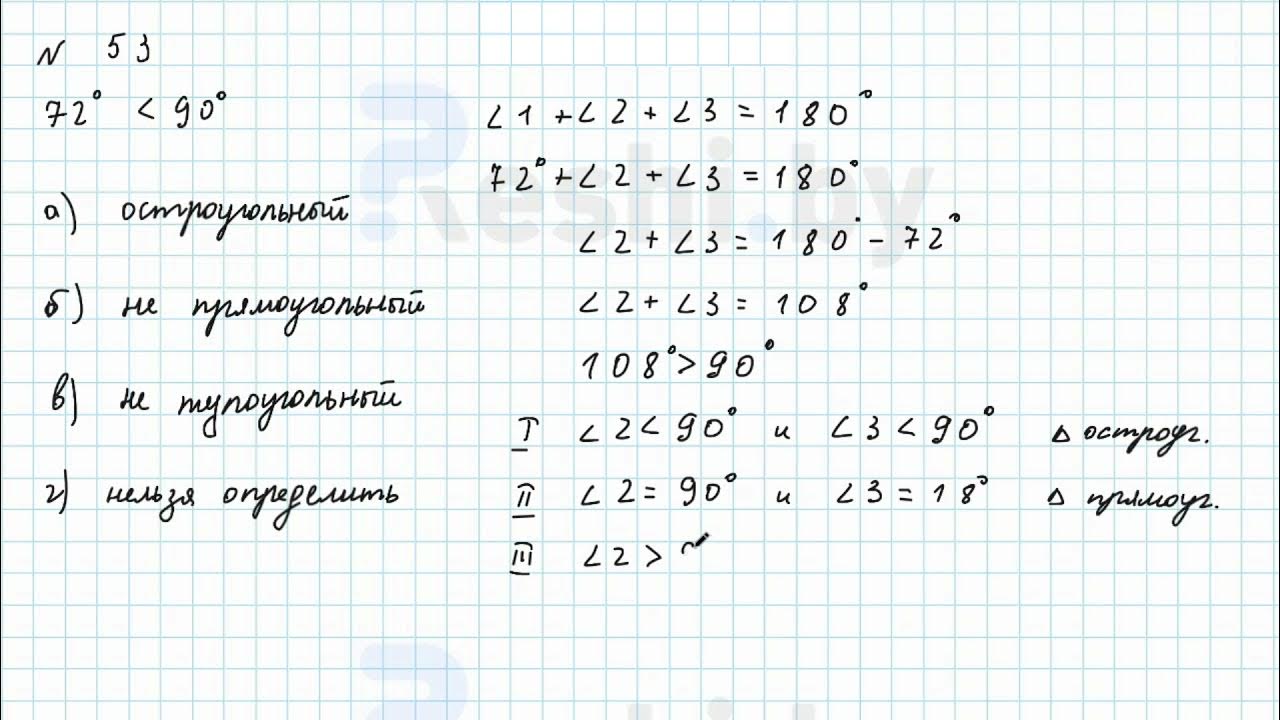 N 53
72° < 90°
а) остроугольный
б) не прямоугольный
в) не тупоугольный
г) нельзя определить
∠1 + ∠2 + ∠3 = 180°
72° + ∠2 + ∠3 = 180°
∠2 + ∠3 = 180° - 72°
∠2 + ∠3 = 108°
108° > 90°
I ∠2 < 90° и ∠3 < 90° Δ остроуг.
II ∠2 = 90° и ∠3 = 18° Δ прямоуг.
III ∠2 >
Reshi.by
Reshi.by